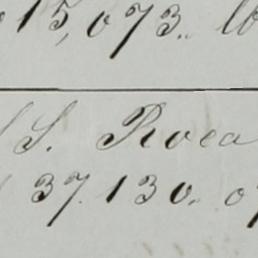 015,073. lb
S. Roca
37.130.